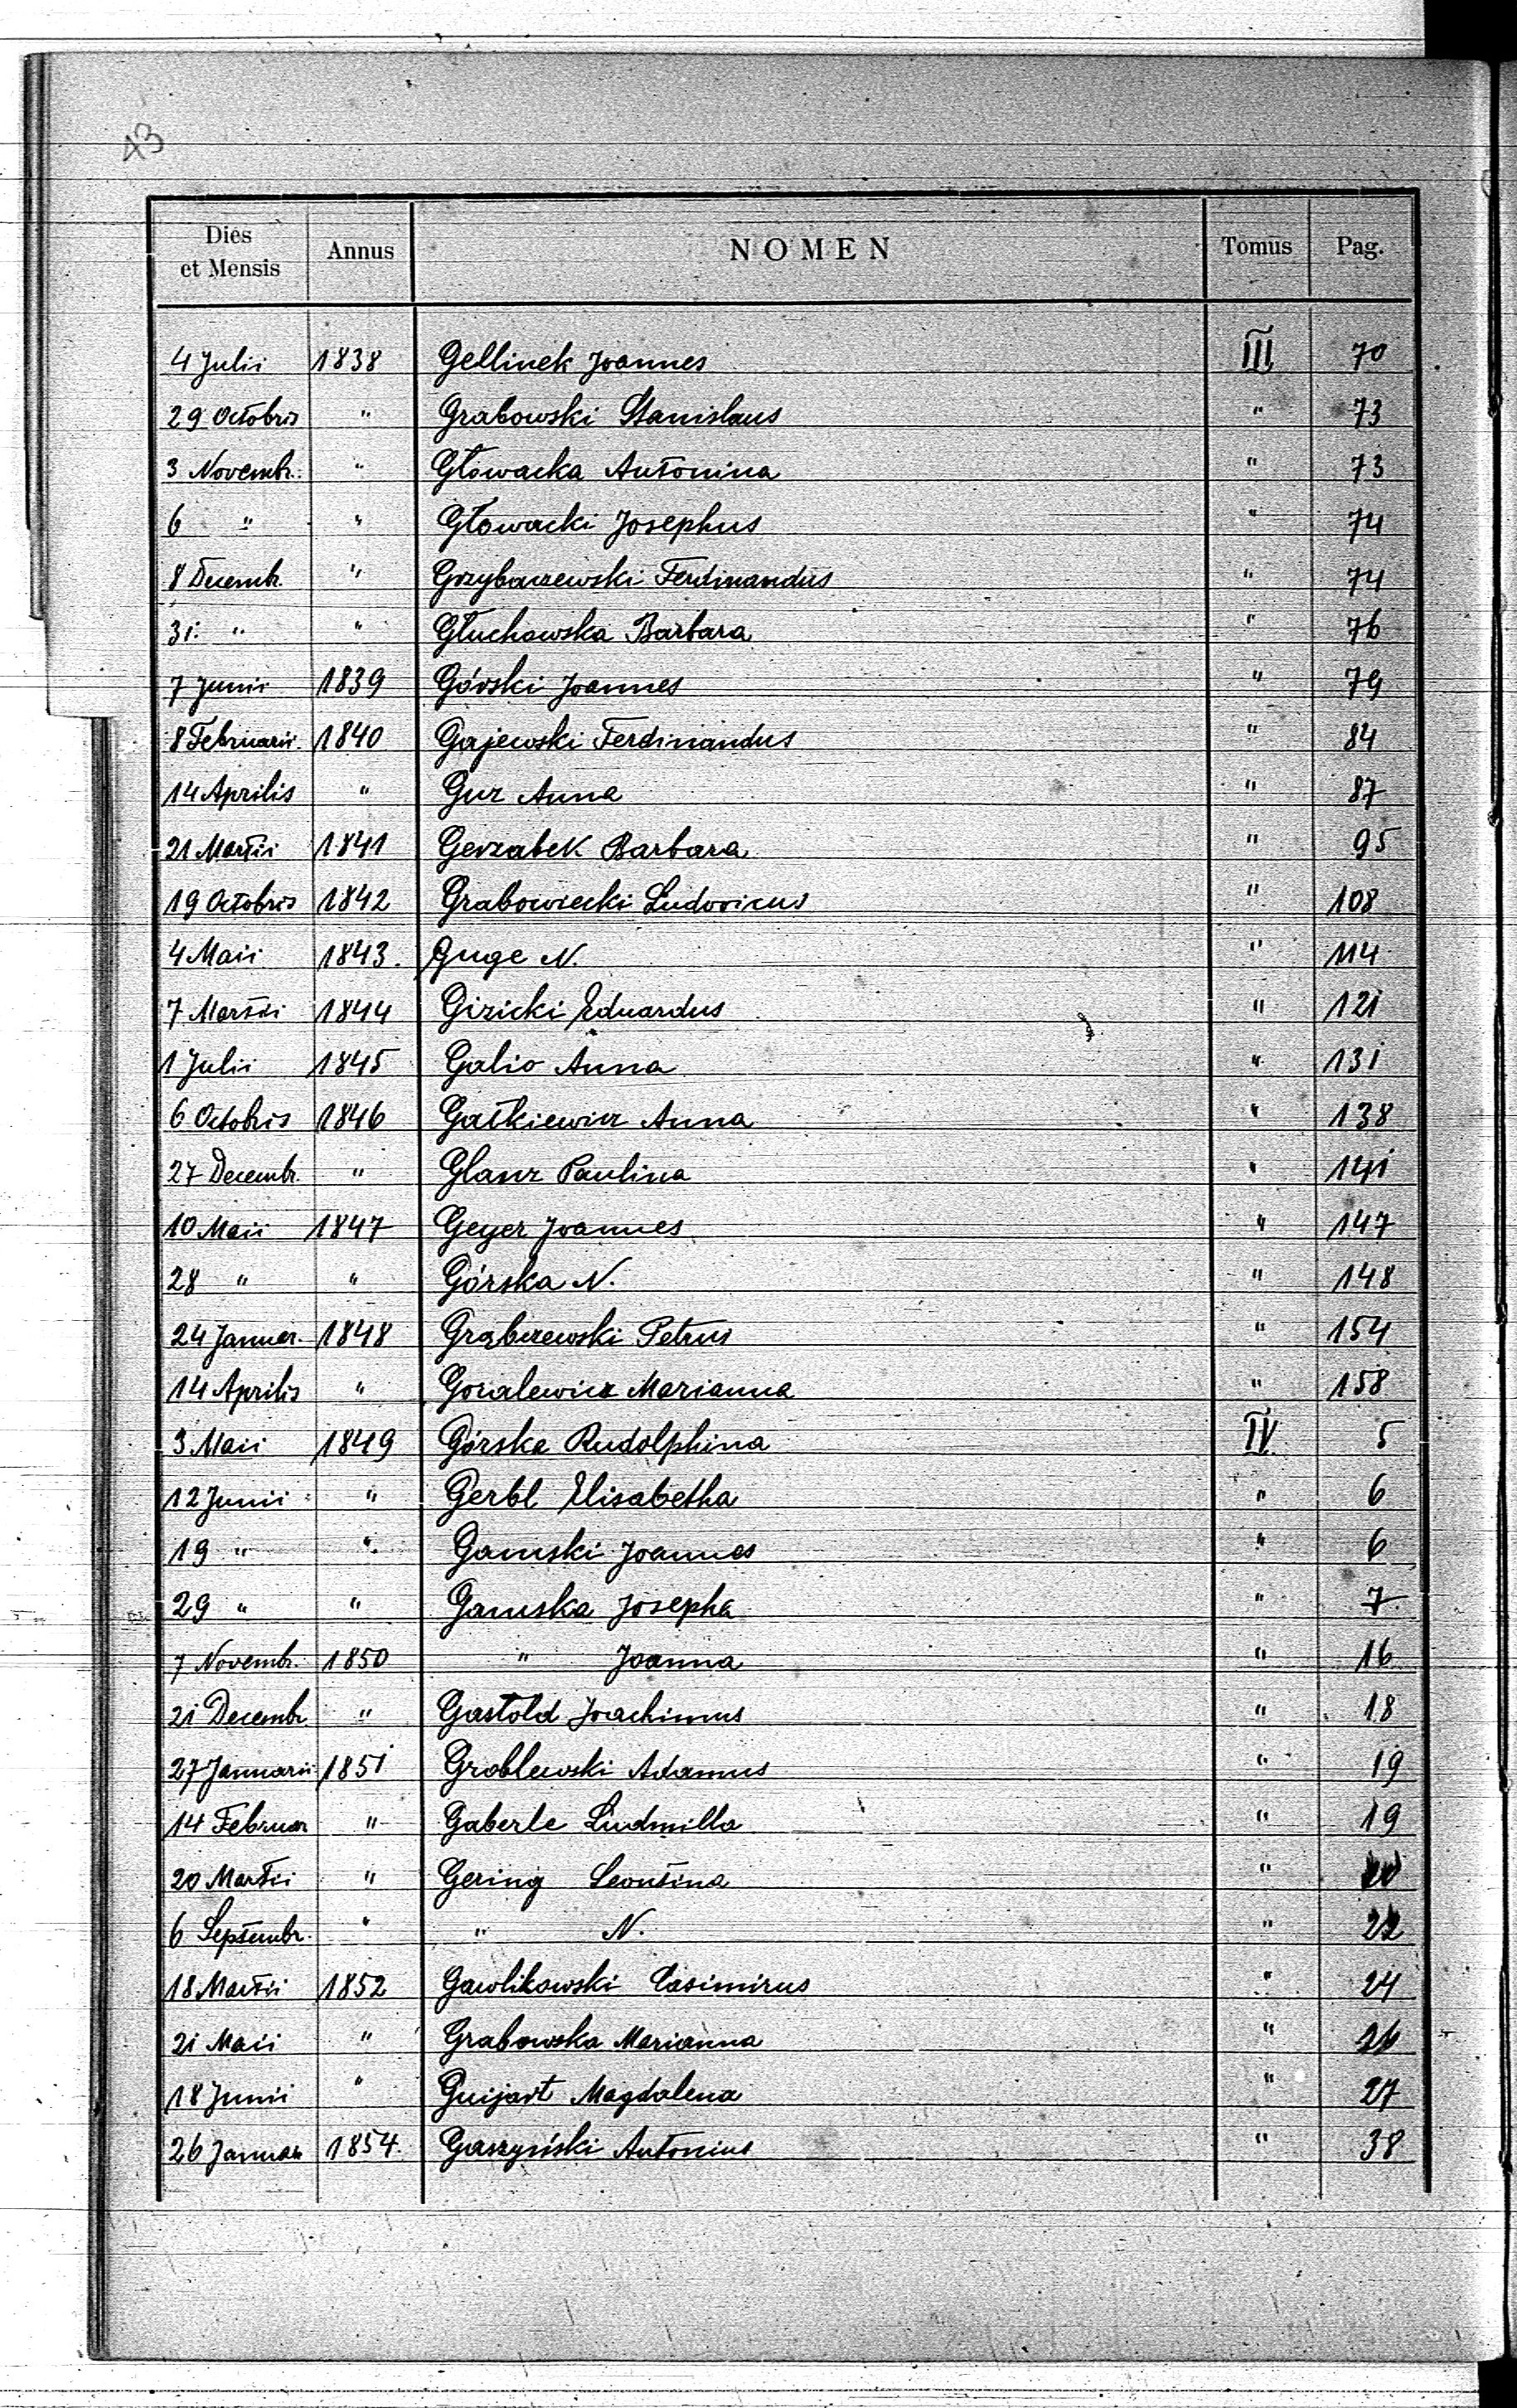 43
Dies et Mensis Annus NOMEN Tomus Pag.
4 Julii 1838 Gellinek Joannes III 70
29 Octobris " Grabowski Stanislaus " 73
3 Novembr. " Głowacka Antonina " 73
6 " " Głowacki Josephus " 74
8 Decembr. " Grzybaczewski Ferdinandus " 74
31 " " Głuchowska Barbara " 76
7 Junii 1839 Górski Joannes " 79
8 Februarii 1840 Gajewski Ferdinandus " 84
14 Aprilis " Guz Anna " 87
21 Martii 1841 Gerzabek Barbara " 95
19 Octobris 1842 Grabowiecki Ludovicus " 108
4 Maii 1843. Guge N. " 114
7 Martii 1844 Gizicki Eduardus " 121
1 Julii 1845 Galio Anna " 131
6 Octobris 1846 Gałkiewicz Anna " 138
27 Decembr. " Glanz Paulina " 141
10 Maii 1847 Geyer Joannes " 147
28 " " Górska N. " 148
24 Januar. 1848 Grąbczewski Petrus " 154
14 Aprilis " Goralewicz Marianna " 158
3 Maii 1849 Górska Rudolphina IV 5
12 Junii " Gerbl Elisabetha " 6
19 " " Gamski Joannes " 6
29 " " Gamska Josepha " 7
7 Novembr. 1850 " Joanna " 16
21 Decembr. " Gastold Joachimus " 18
27 Januarii 1851 Groblewski Adamus " 19
14 Februar " Gaberle Ludmilla " 19
20 Martii " Gering Leontina " 20
6 Septembr. " " N. " 22
18 Martii 1852 Gawlikowski Casimirus " 24
21 Maii " Grabowska Marianna " 26
18 Junii " Guijart Magdalena " 27
26 Januar 1854. Gaszyński Antonius " 38